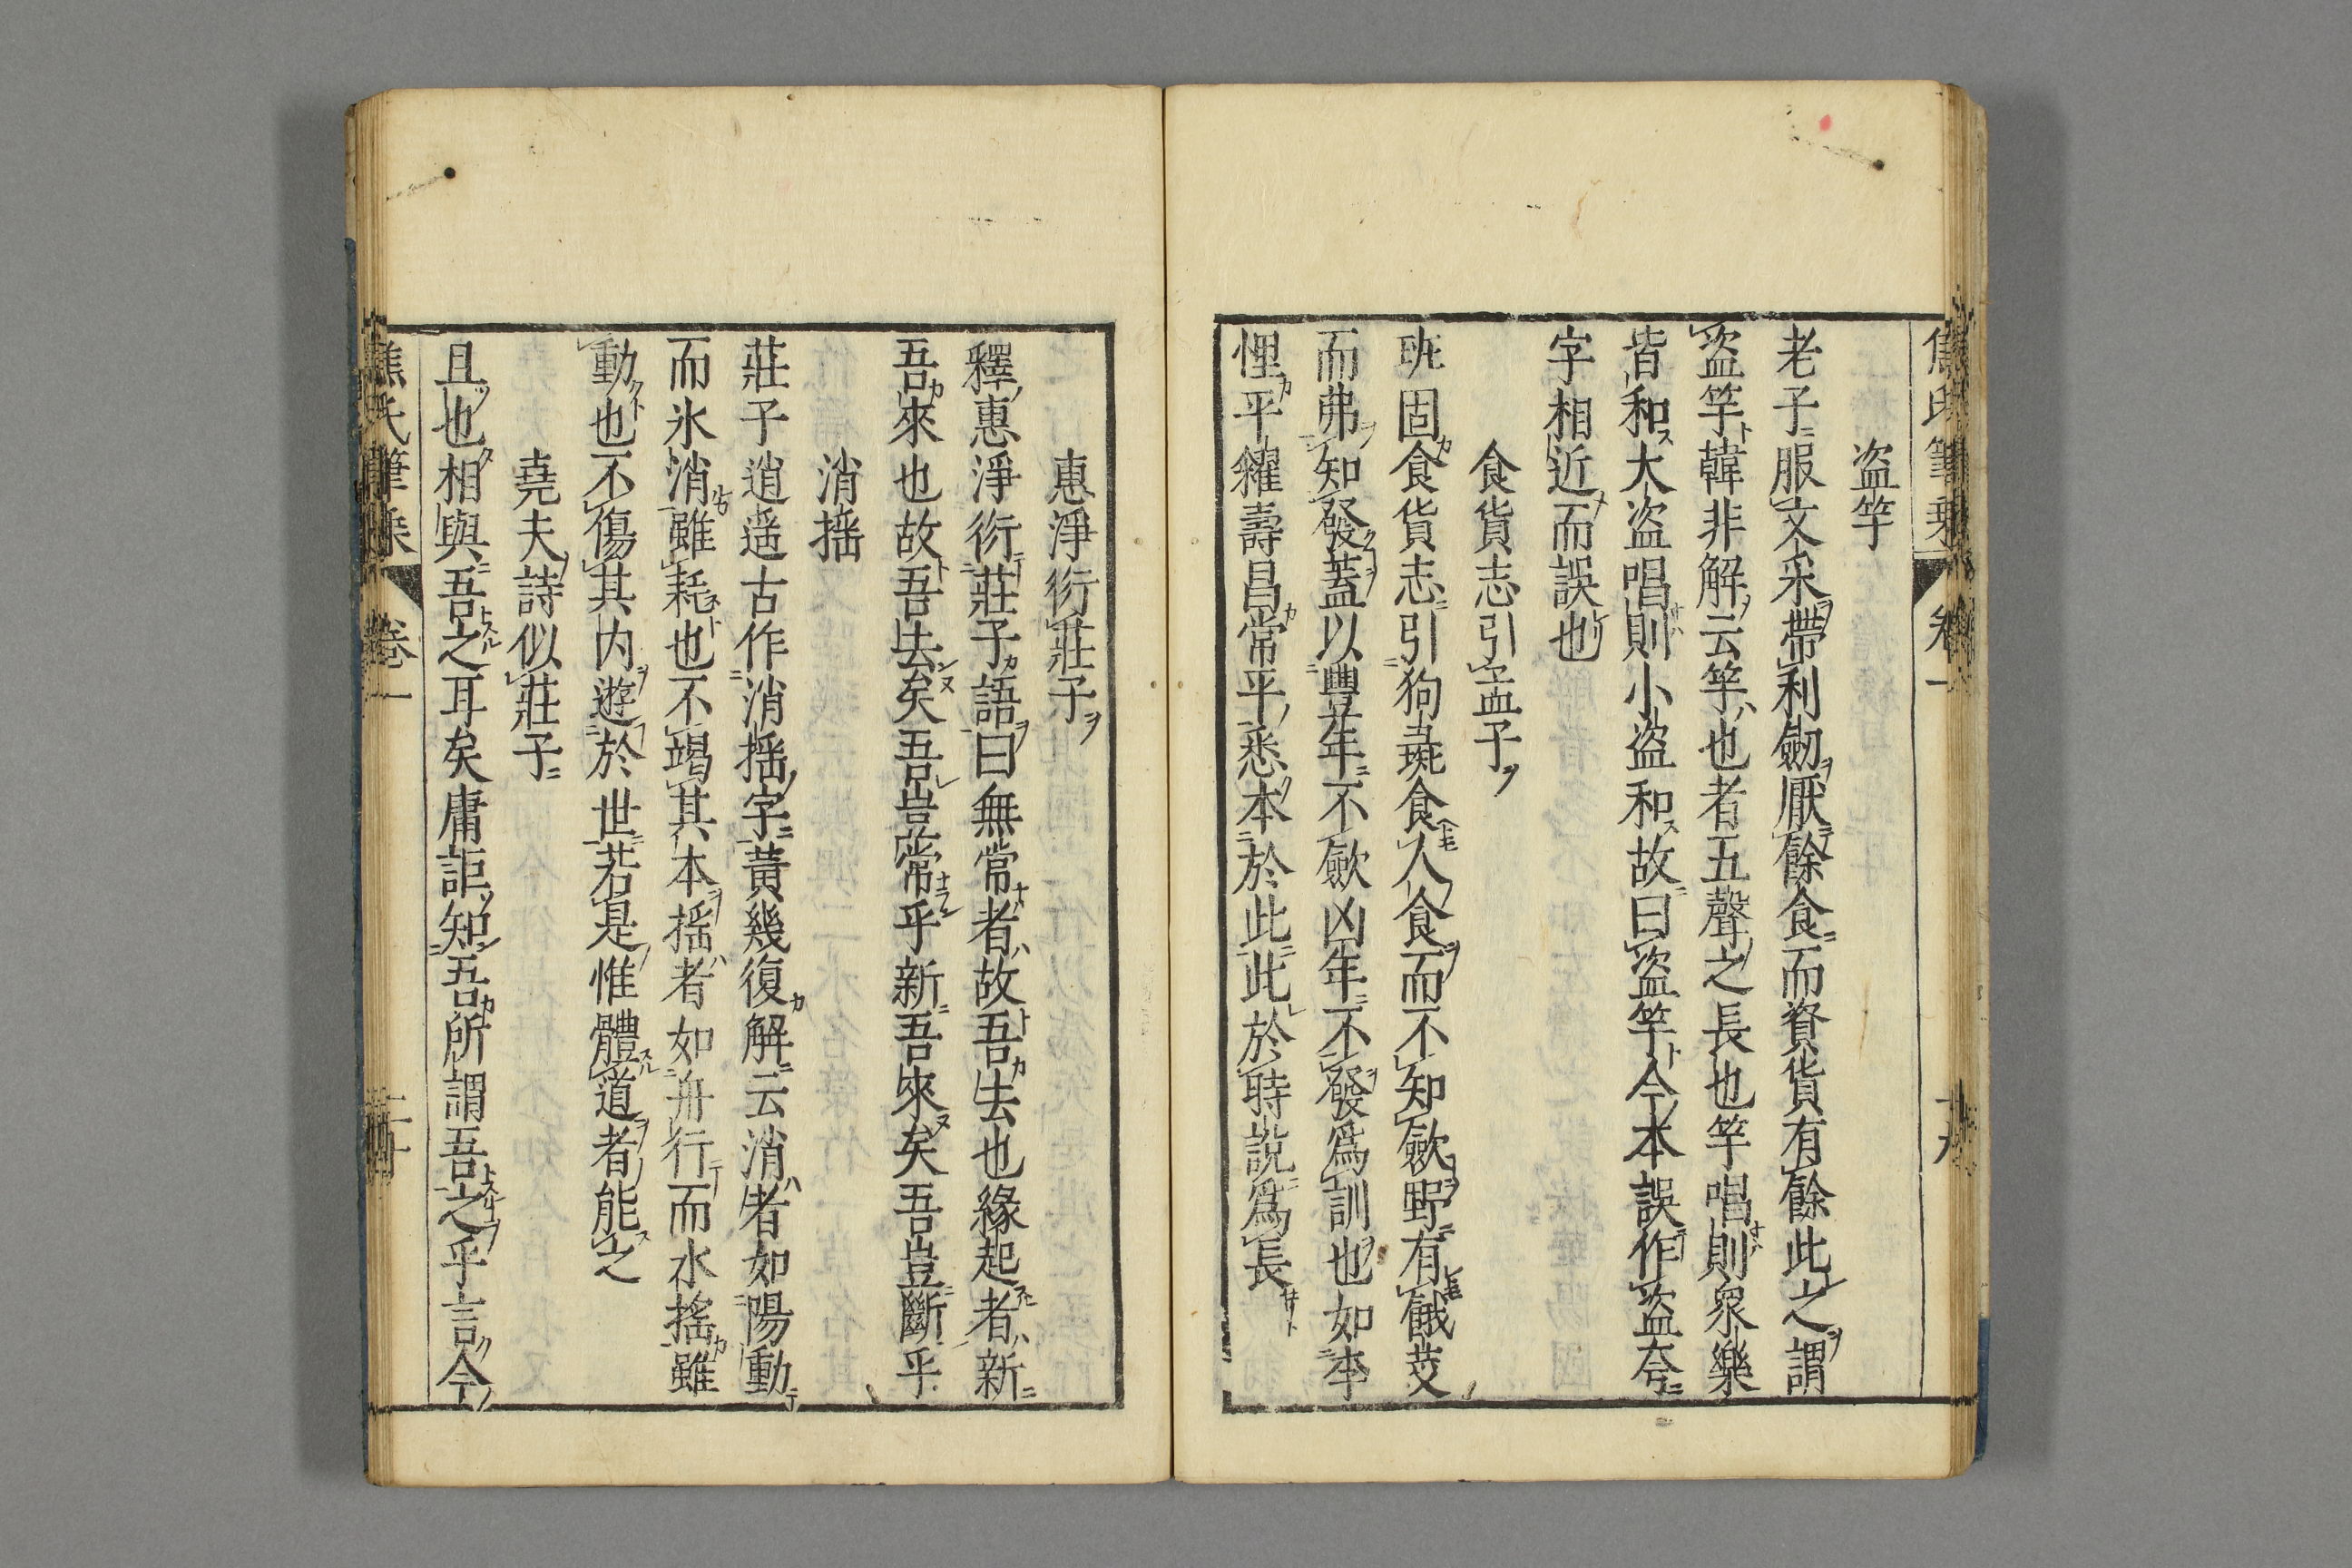 焦氏筆乗 卷一
盗竽
老子服文采帶利劒厭餘食而資貨有餘此之謂
盗竽韓非解云竽也者五聲之長也竽唱則衆樂
皆和大盗唱則小盗和故曰盗竽今本誤作盗夸
字相近而誤也
食貨志引孟子
班固食貨志引狗彘食人食而不知歛野有餓莩
而弗知發蓋以豐年不歛凶年不發爲訓也如李
悝平糴壽昌常平悉本於此此於時說爲長
惠淨衍莊子
釋惠淨衍莊子語曰無常者故吾去也緣起者新
吾來也故吾去矣吾豈常乎新吾來矣吾豈斷乎
消揺
莊子逍遥古作消揺字黃幾復解云消者如陽動
而氷消雖耗也不竭其本揺者如舟行而水搖雖
動也不傷其内遊於世若是惟體道者能之
堯夫詩似莊子
且也相與吾之耳矣庸詎知吾所謂吾之乎言今
焦氏筆乗 卷一